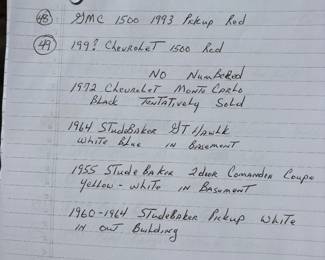 48 GMC 1500 1993 Pickup Red
49 199? Chevrolet 1500 Red
No Numbered
1972 Chevrolet Monte Carlo
Black Tentatively Sold
1964 Studebaker GT Hawlk
White Blue in Basement
1955 Studebaker 2 door Comander Coupe
Yellow - White in Basement
1960-1964 Studebaker Pickup White
in out Building